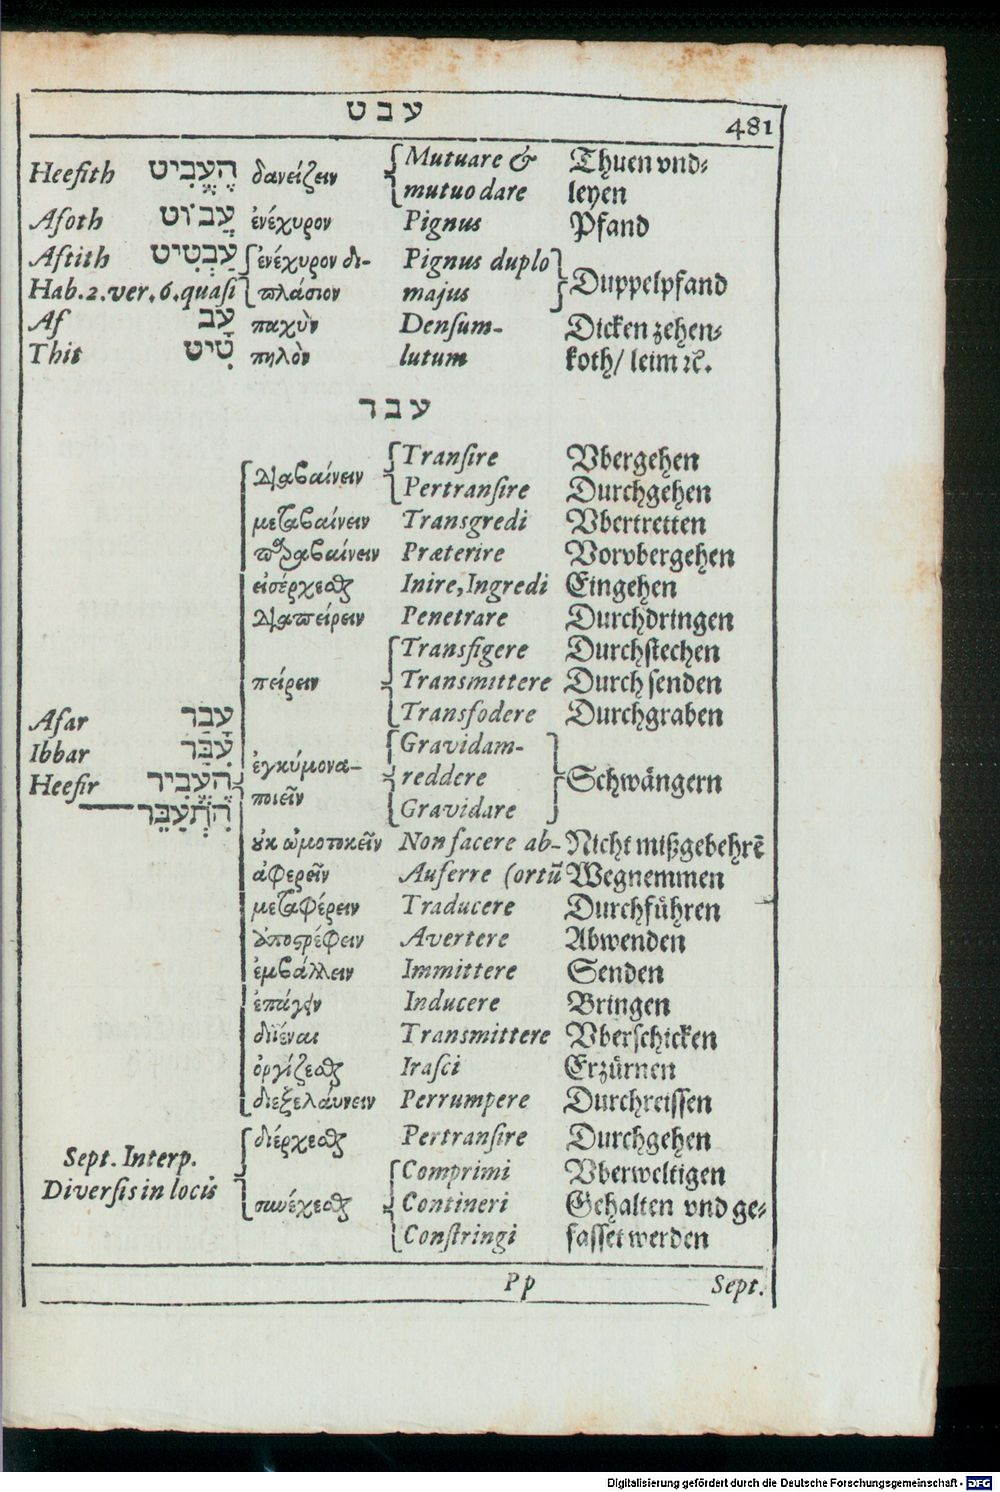 עבט
481
Heefith הֶעֱבִיט δανείζειν Mutuare & Thuen vnd⸗
mutuo dare leyen
Afoth עֲבוֹט ἐνέχυρον Pignus Pfand
Aftith עַבְטִיט ἐνέχυρον δι- Pignus duplo
Hab. 2. ver. 6. quasi πλάσιον majus Duppelpfand
Af עָב παχὺν Densum- Dicken zehen⸗
Thit טִיט πηλὸν lutum koth/ leim ꝛc.
עבר
διαβαίνειν Transire Vbergehen
Pertransire Durchgehen
μεταβαίνειν Transgredi Vbertretten
παραβαίνειν Præterire Vorvbergehen
εἰσέρχεσθαι Inire, Ingredi Eingehen
διαπείρειν Penetrare Durchdringen
Transfigere Durchstechen
πείρειν Transmittere Durch senden
Transfodere Durchgraben
Afar עָבַר
Ibbar עִבַּר
Heefir הֶעֱבִיר
הִתְעַבֵּר
Gravidam-
ἐγκύμονα- reddere Schwängern
ποιεῖν Gravidare
ουκ ὠμοτοκεῖν Non facere ab- Nicht mißgebehrē
ἀφερεῖν Auferre (ortū Wegnemmen
μεταφέρειν Traducere Durchführen
ἀποστρέφειν Avertere Abwenden
ἐμβάλλειν Immittere Senden
ἐπάγειν Inducere Bringen
διϊέναι Transmittere Vberschicken
ὀργίζεσθαι Irasci Erzürnen
διεξελάυνειν Perrumpere Durchreissen
διέρχεσθαι Pertransire Durchgehen
Sept. Interp.
Diversis in locis
Comprimi Vberweltigen
συνέχεσθαι Contineri Gehalten vnd ge⸗
Constringi fasset werden
Pp Sept.
Digitalisierung gefördert durch die Deutsche Forschungsgemeinschaft - DFG